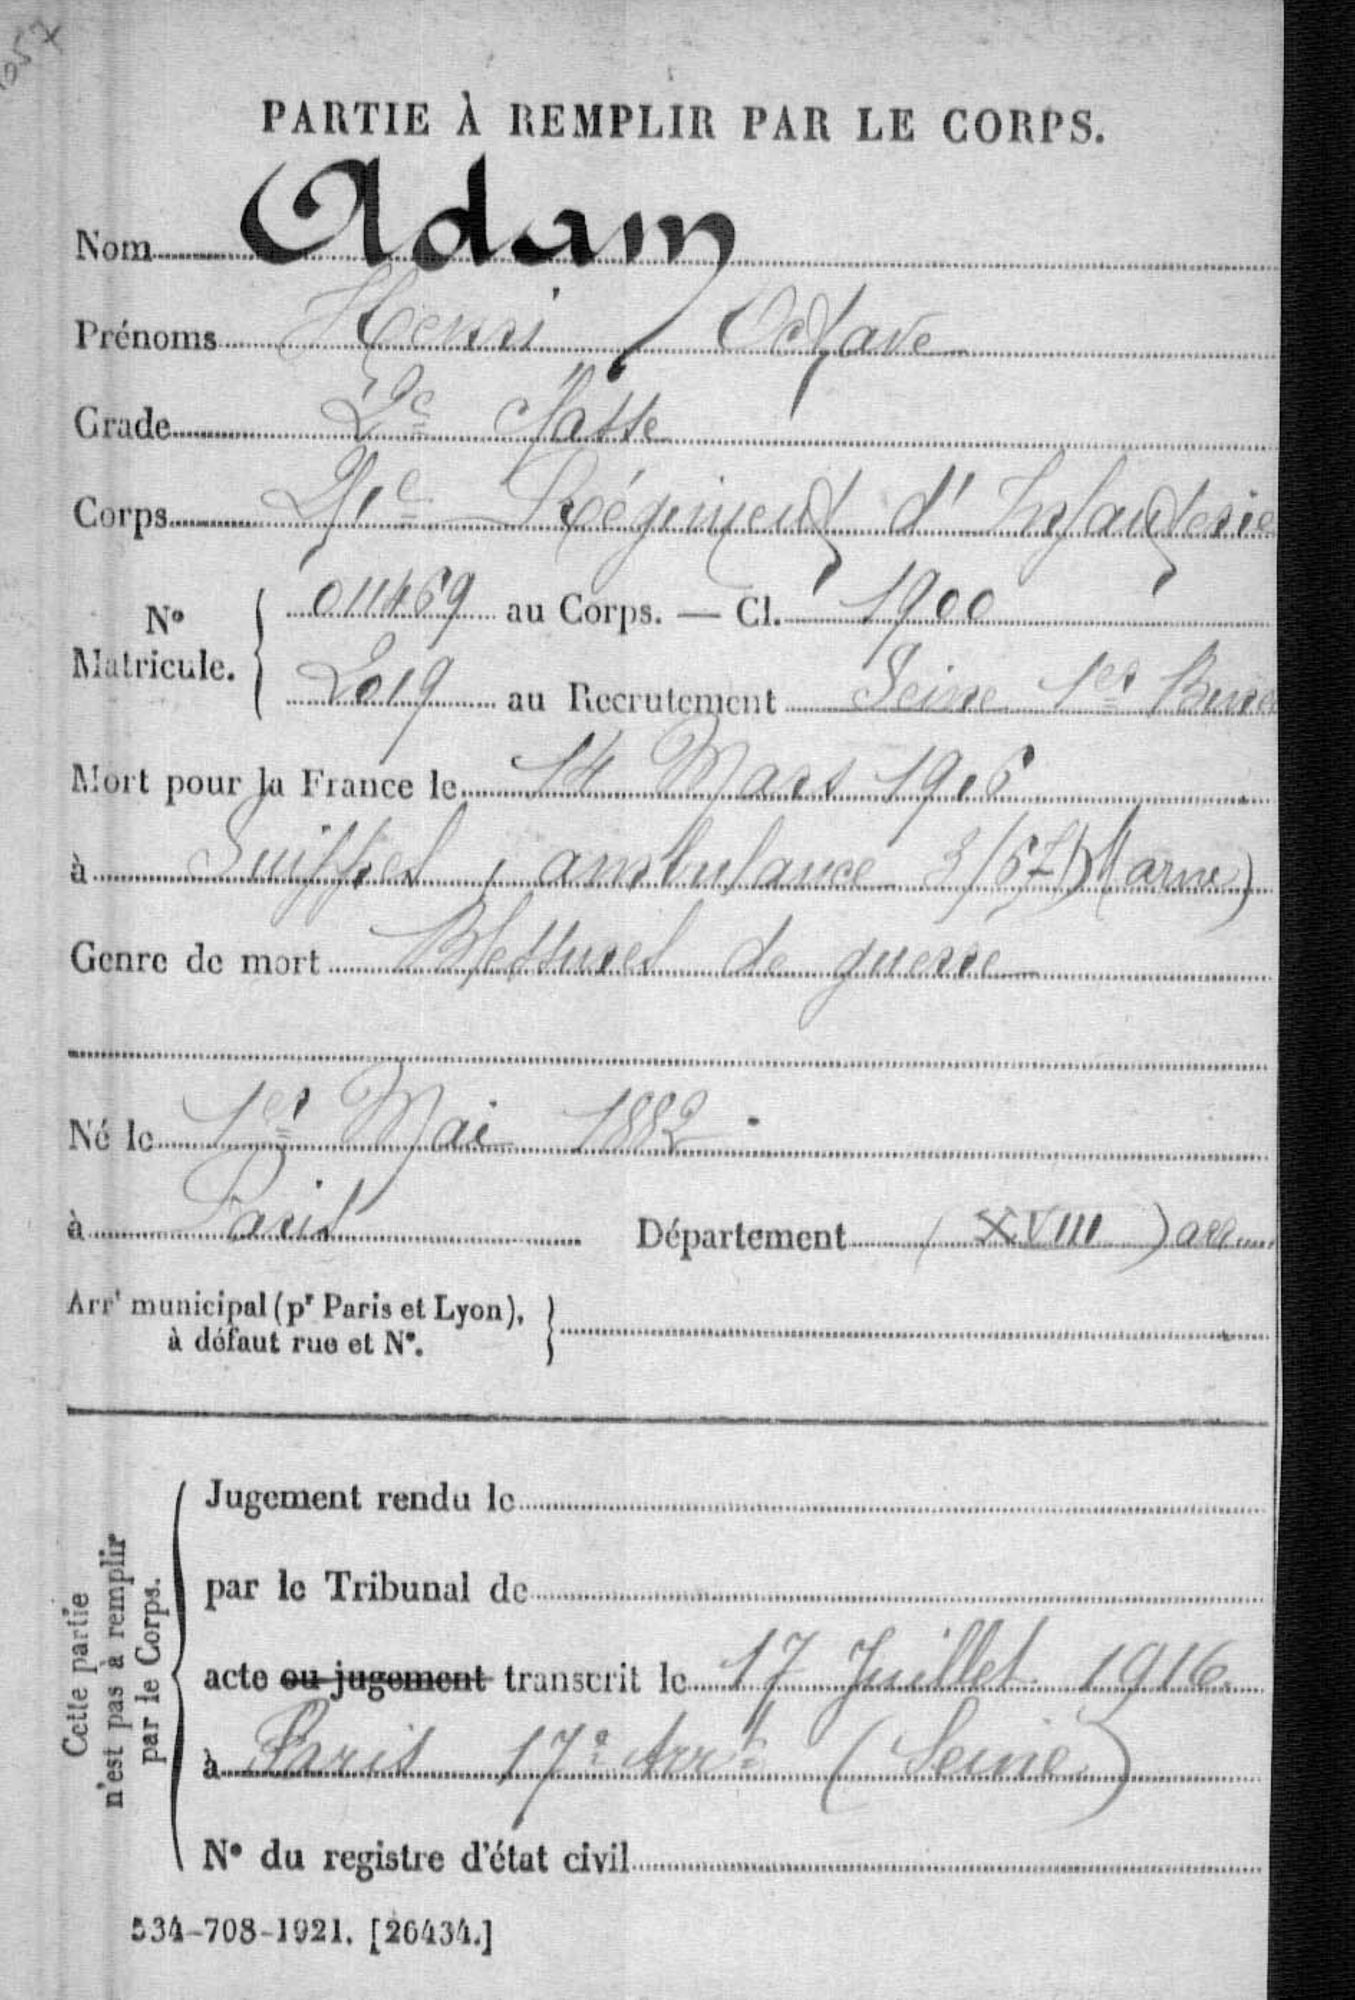 PARTIE À REMPLIR PAR LE CORPS.
Nom Adam
Prénoms Henri Octave
Grade 2e classe
Corps 21e Régiment d'Infanterie
No Matricule. { 011469 au Corps. — Cl. 1900
2019 au Recrutement Seine 1er Bureau
Mort pour la France le 14 Mars 1916
à Suippes, ambulance 3/67 (Marne)
Genre de mort Blessures de guerre
Né le 1er Mai 1882
à Paris Département (XVIII) arr
Arrt municipal (pr Paris et Lyon),
à défaut rue et No. }
Cette partie
n'est pas à remplir
par le Corps.
Jugement rendu le
par le Tribunal de
acte ou jugement transcrit le 17 Juillet 1916
à Paris 17e Arrt (Seine)
No du registre d'état civil
534-708-1921. [26434.]